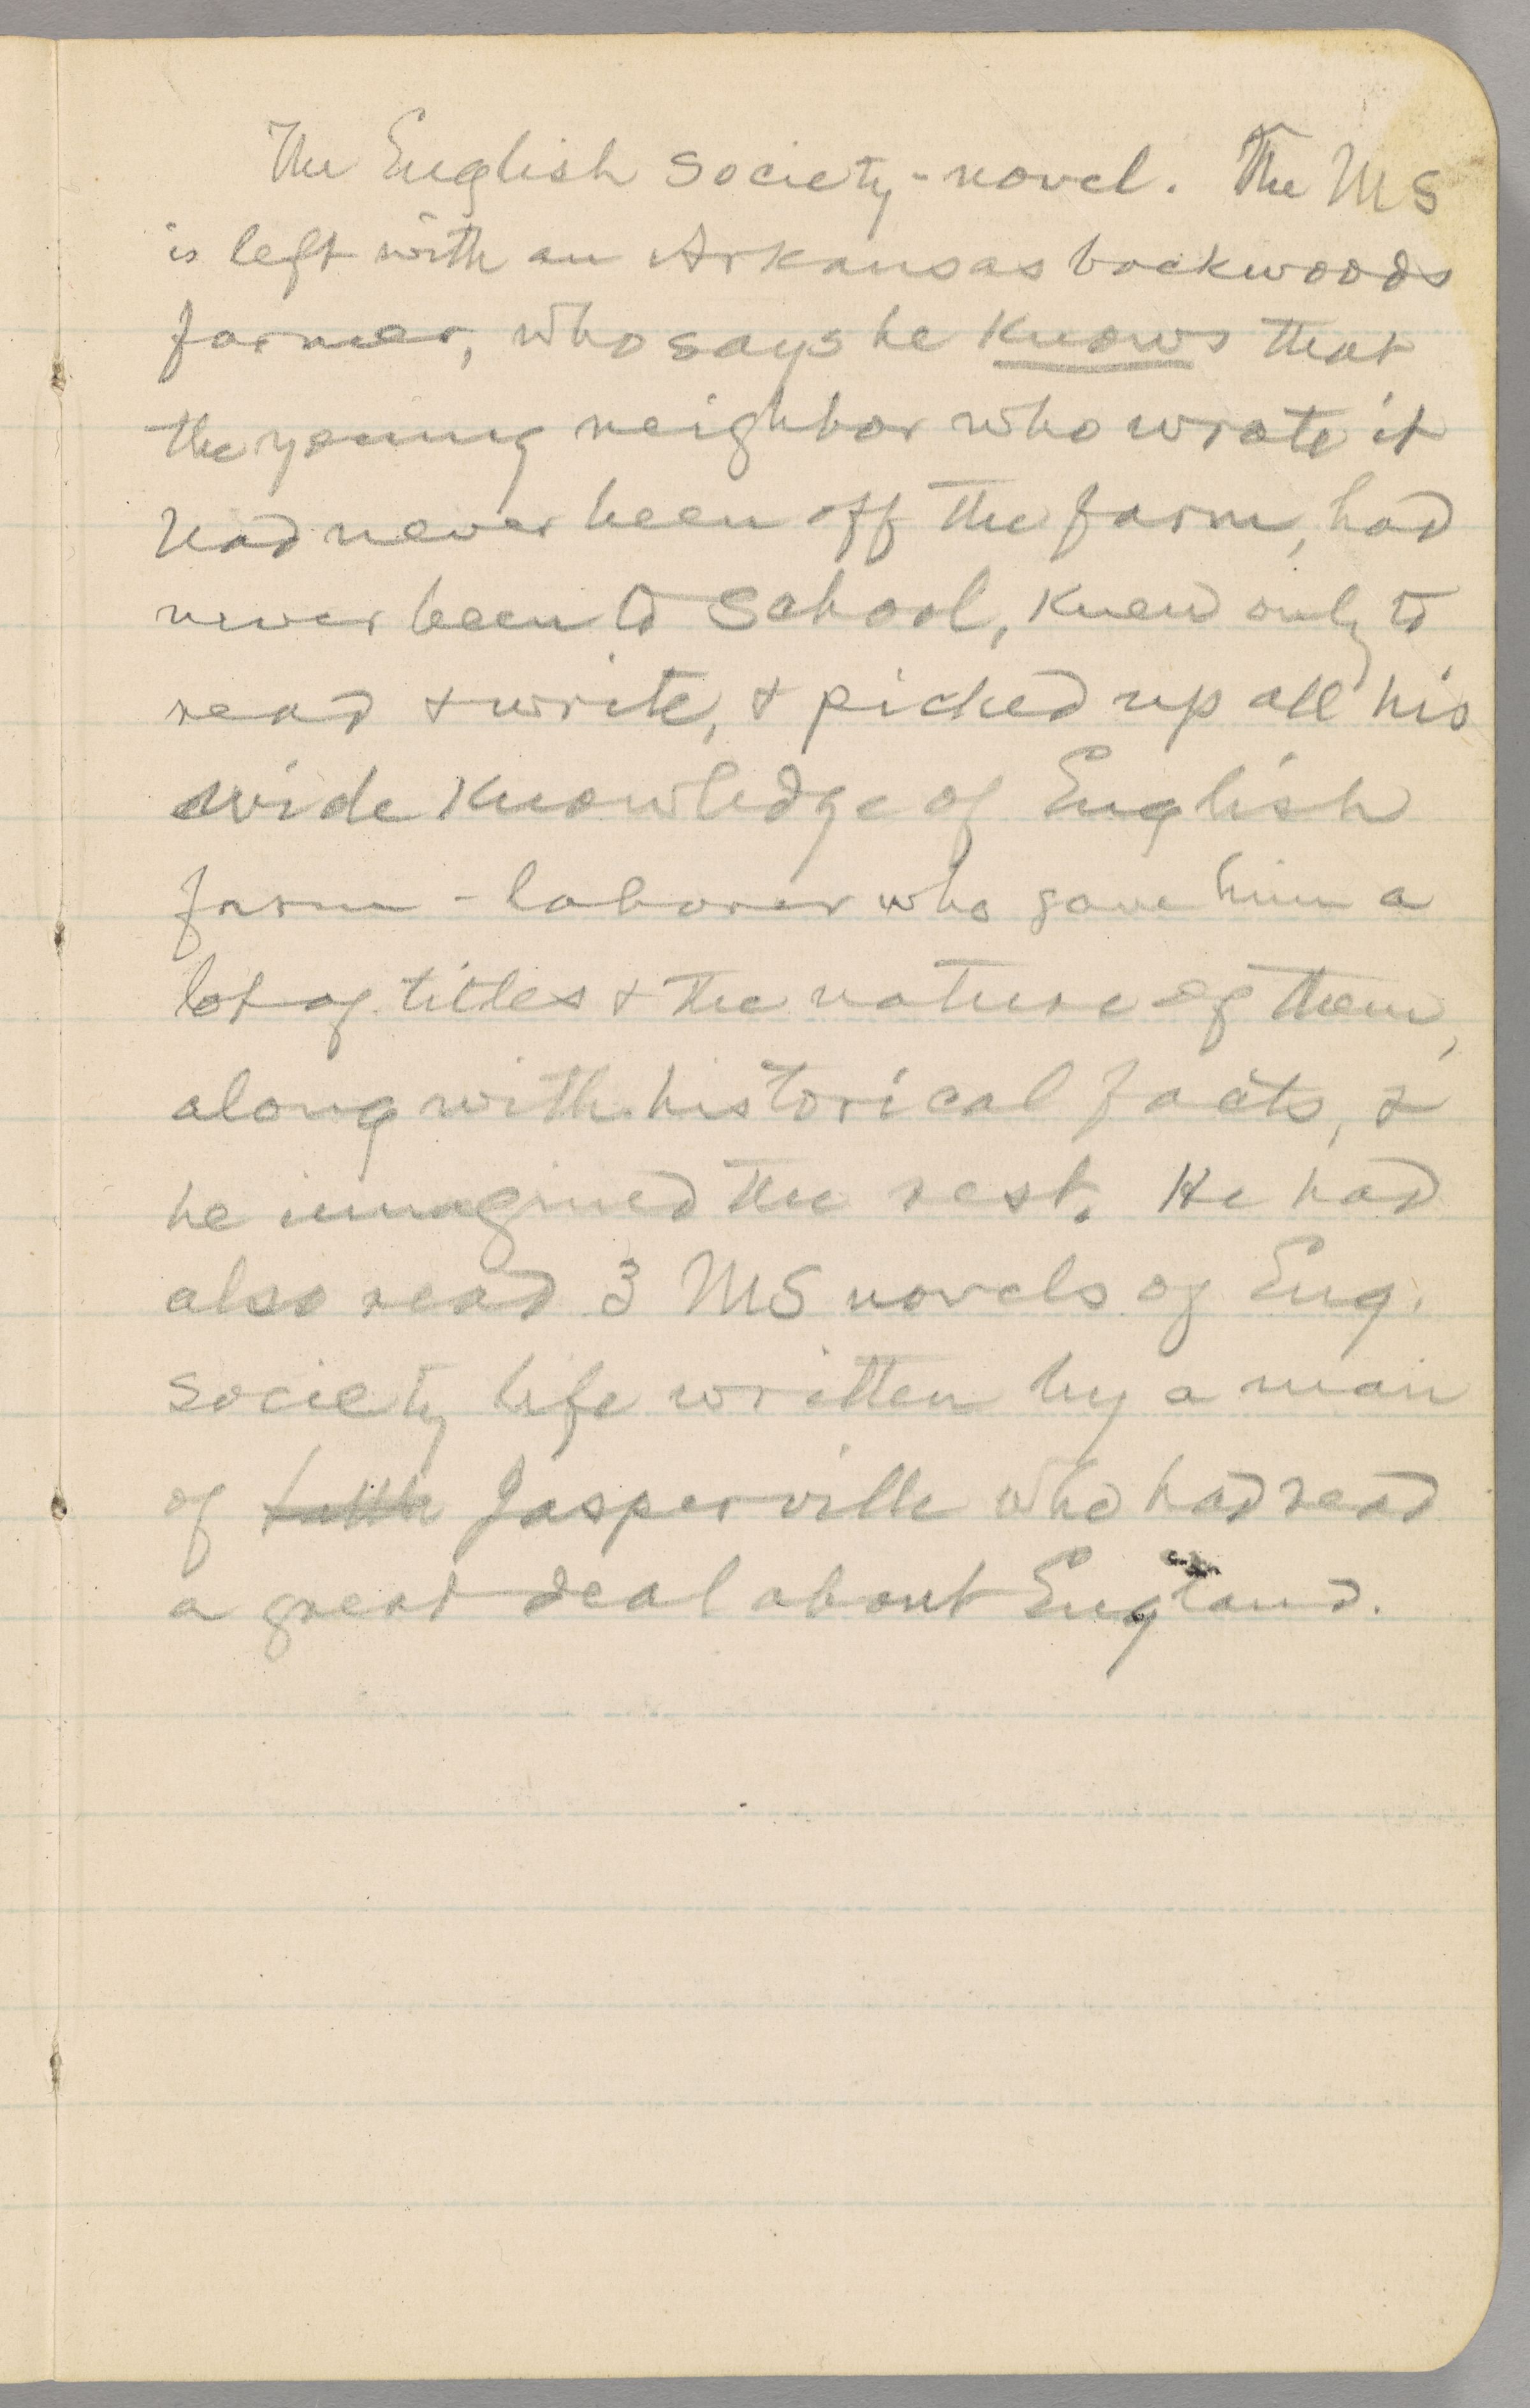 The English Society-novel. The MS
is left with an Arkansas backwoods
farmer, who says he knows that
the young neighbor who wrote it
had never been off the farm, had
never been to school, knew only to
read & write, & picked up all his
wide knowledge of English
farm-laborer who gave him a
lot of titles & the nature of them,
along with historical facts, &
he immagined the rest. He had
also read 3 MS novels of Eng.
society life written by a man
of Jasperville who had read
a great deal about England.